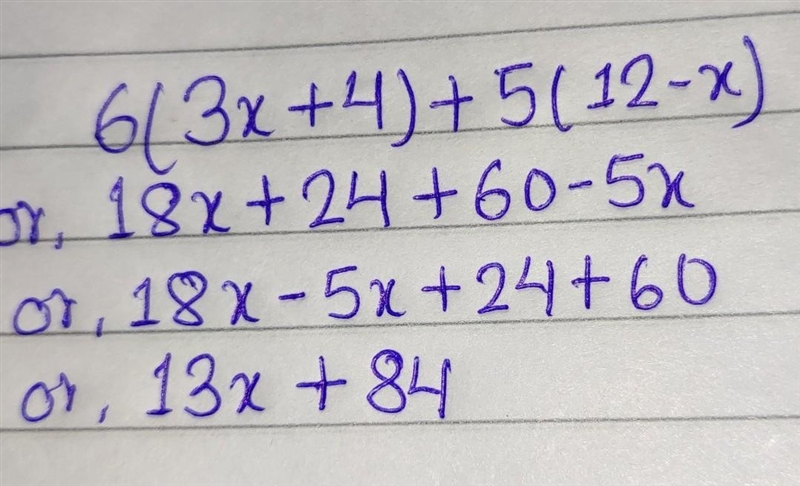 6(3x+4)+5(12-x)
or, 18x+24+60-5x
or, 18x-5x+24+60
or, 13x+84